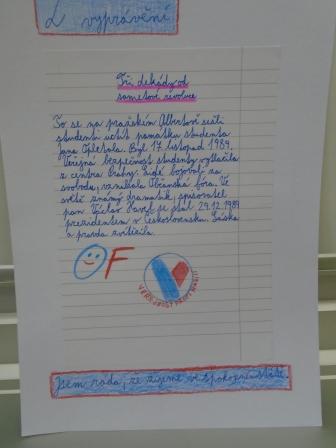 Z vyprávění
Tři dekády od
sametové revoluce
To se na pražském Albertově sešli
studenti uctít památku studenta
Jana Opletala. Byl 17. listopad 1989.
Veřejná bezpečnost studenty vytlačila
z centra Prahy. Lidé bojovali za
svobodu, vznikala Občanská fóra. Ve
světě známý dramatik, spisovatel
pan Václav Havel se stal 29.12.1989
prezidentem v Československu. Láska
a pravda zvítězila
OF
VEREJNOSŤ PROTI NÁSILIU
Jsem ráda, že žijeme ve